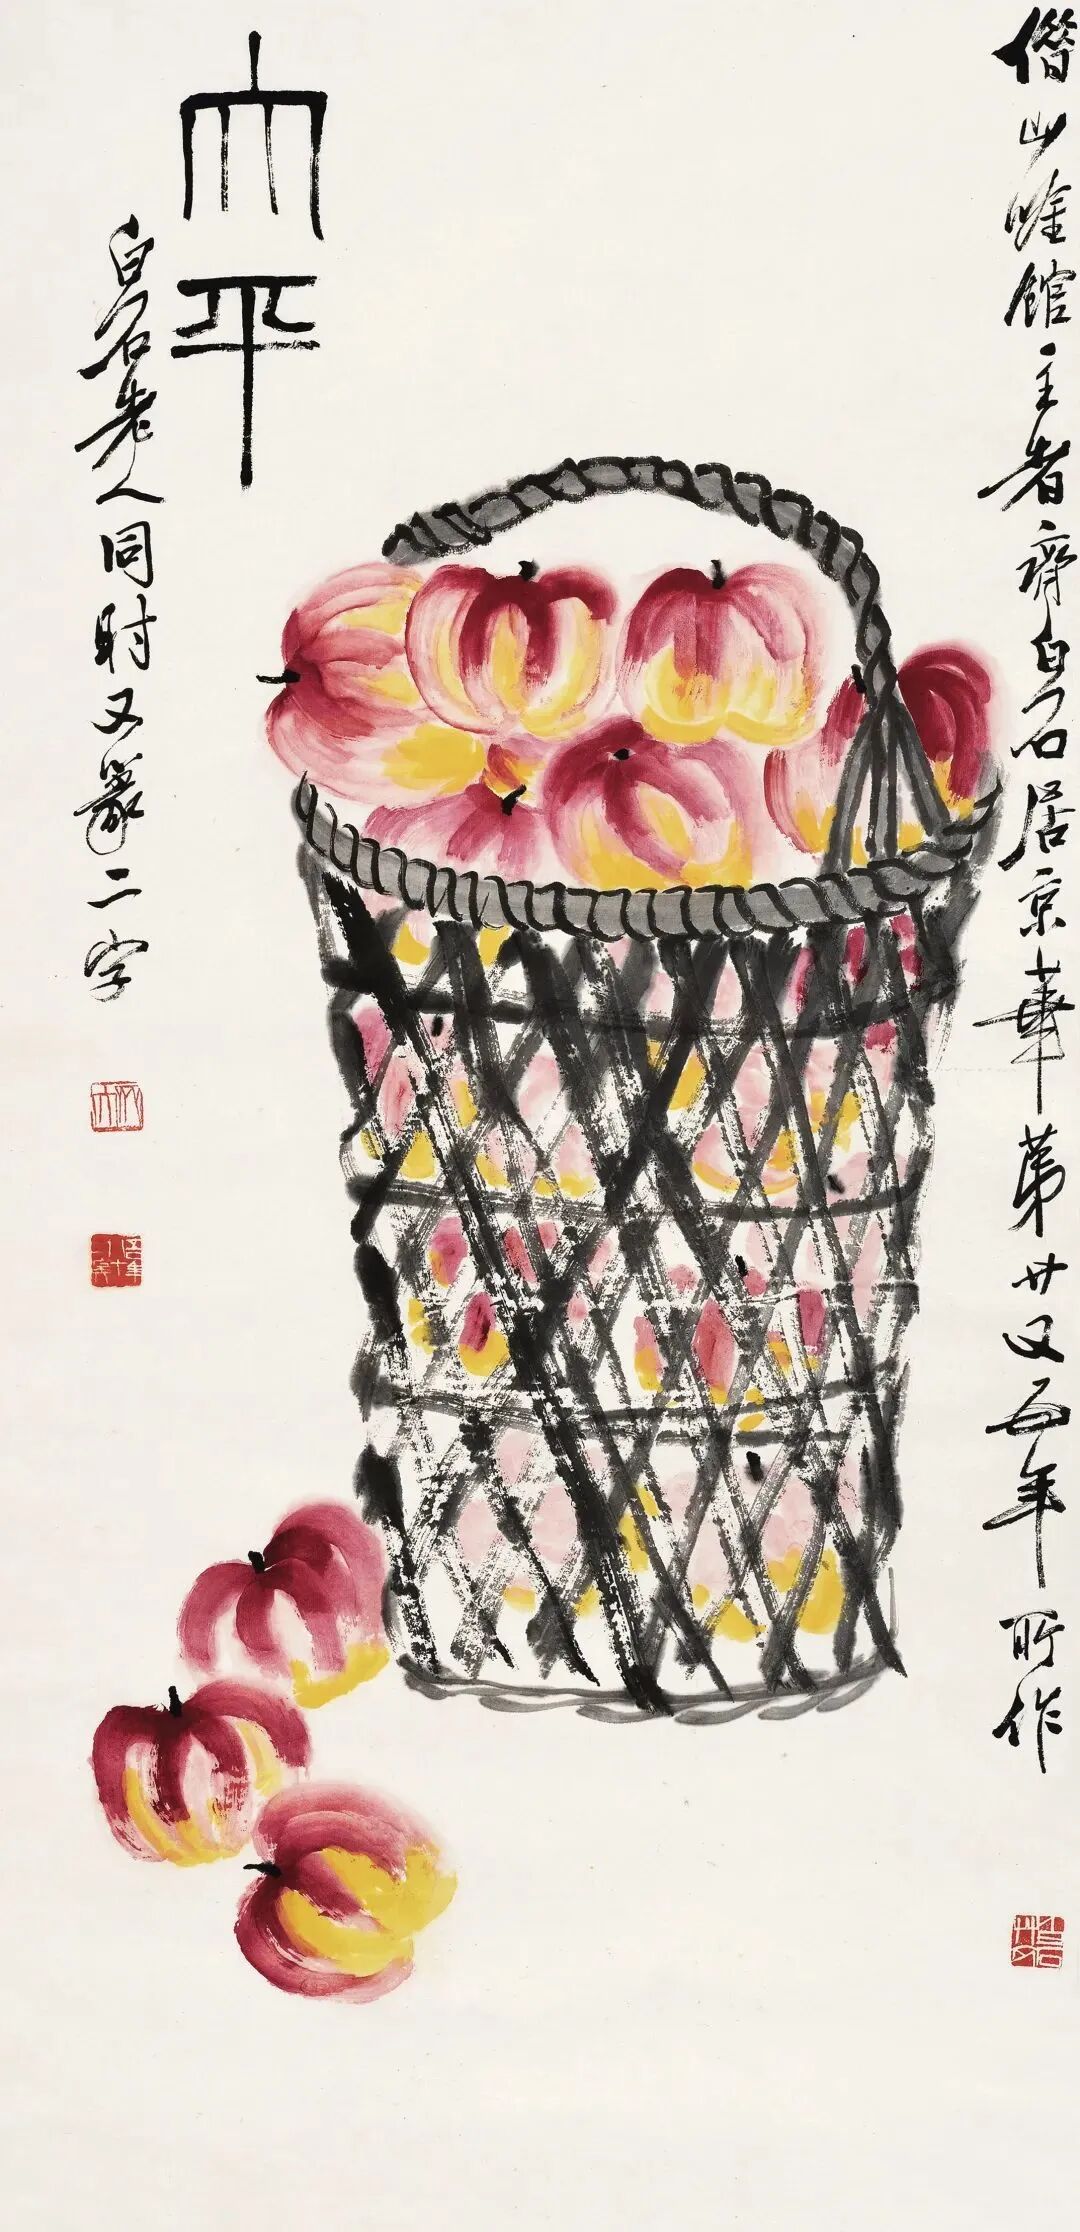 借山唫館主者齊白石居京華第廿又五年所作
大平
白石老人同时又篆二字